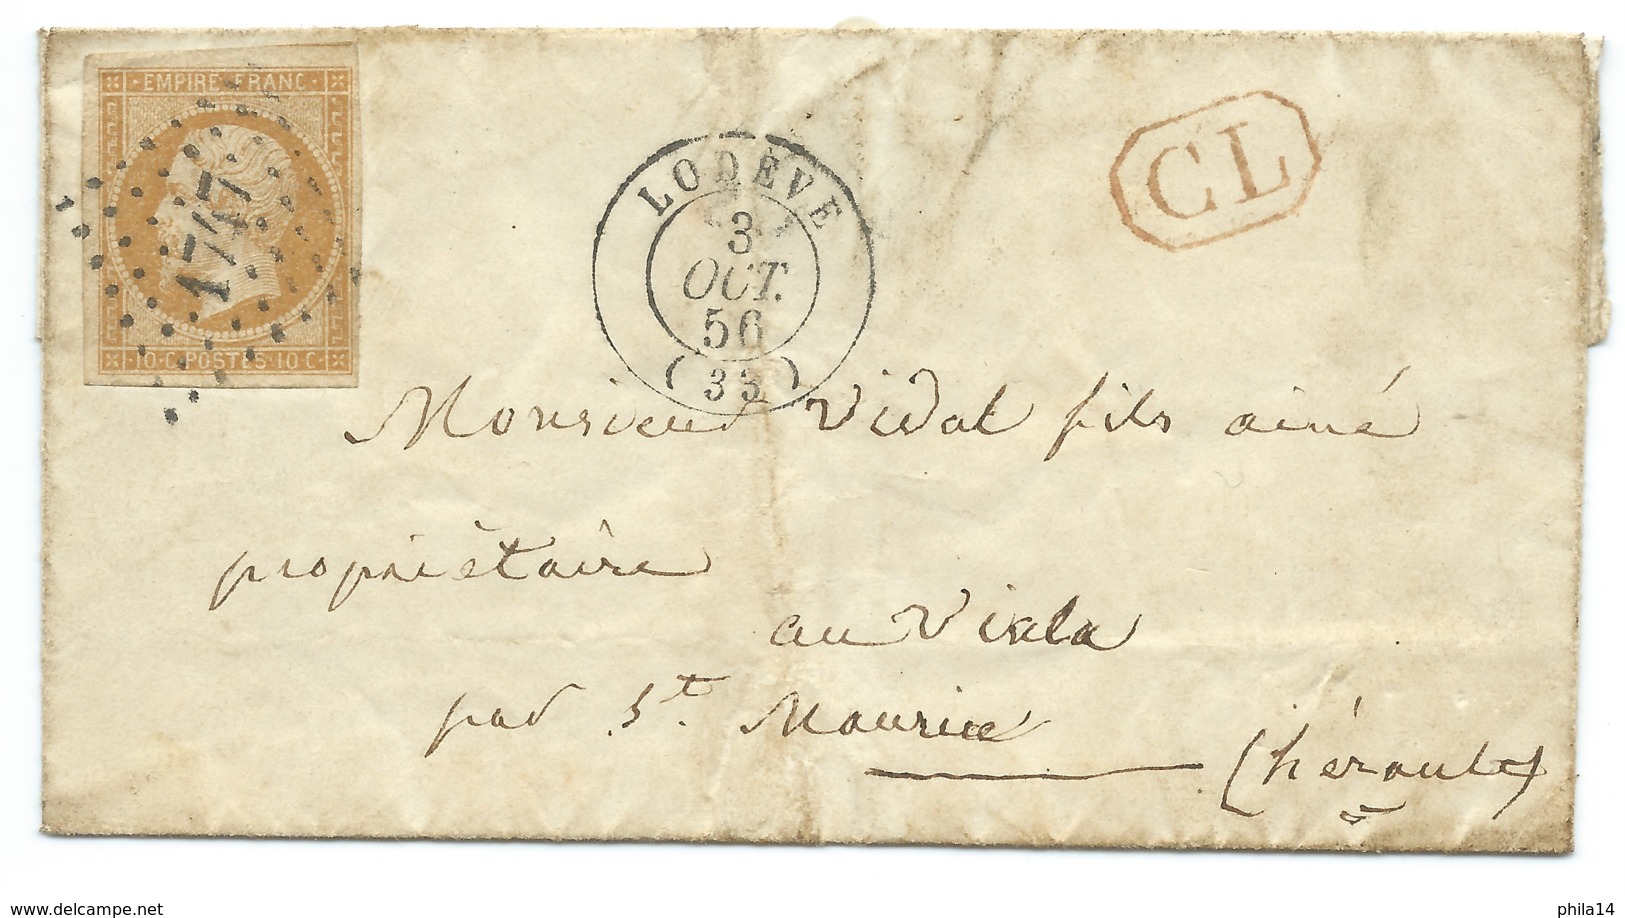 EMPIRE FRANC
1747
10 C POSTES 10 C
LODÈVE
3
OCT.
56
(33)
CL
Monsieur Vidal fils ainé
propriétaire
au Viala
par St. Maurice
(hérault)
www.delcampe.net
phila14